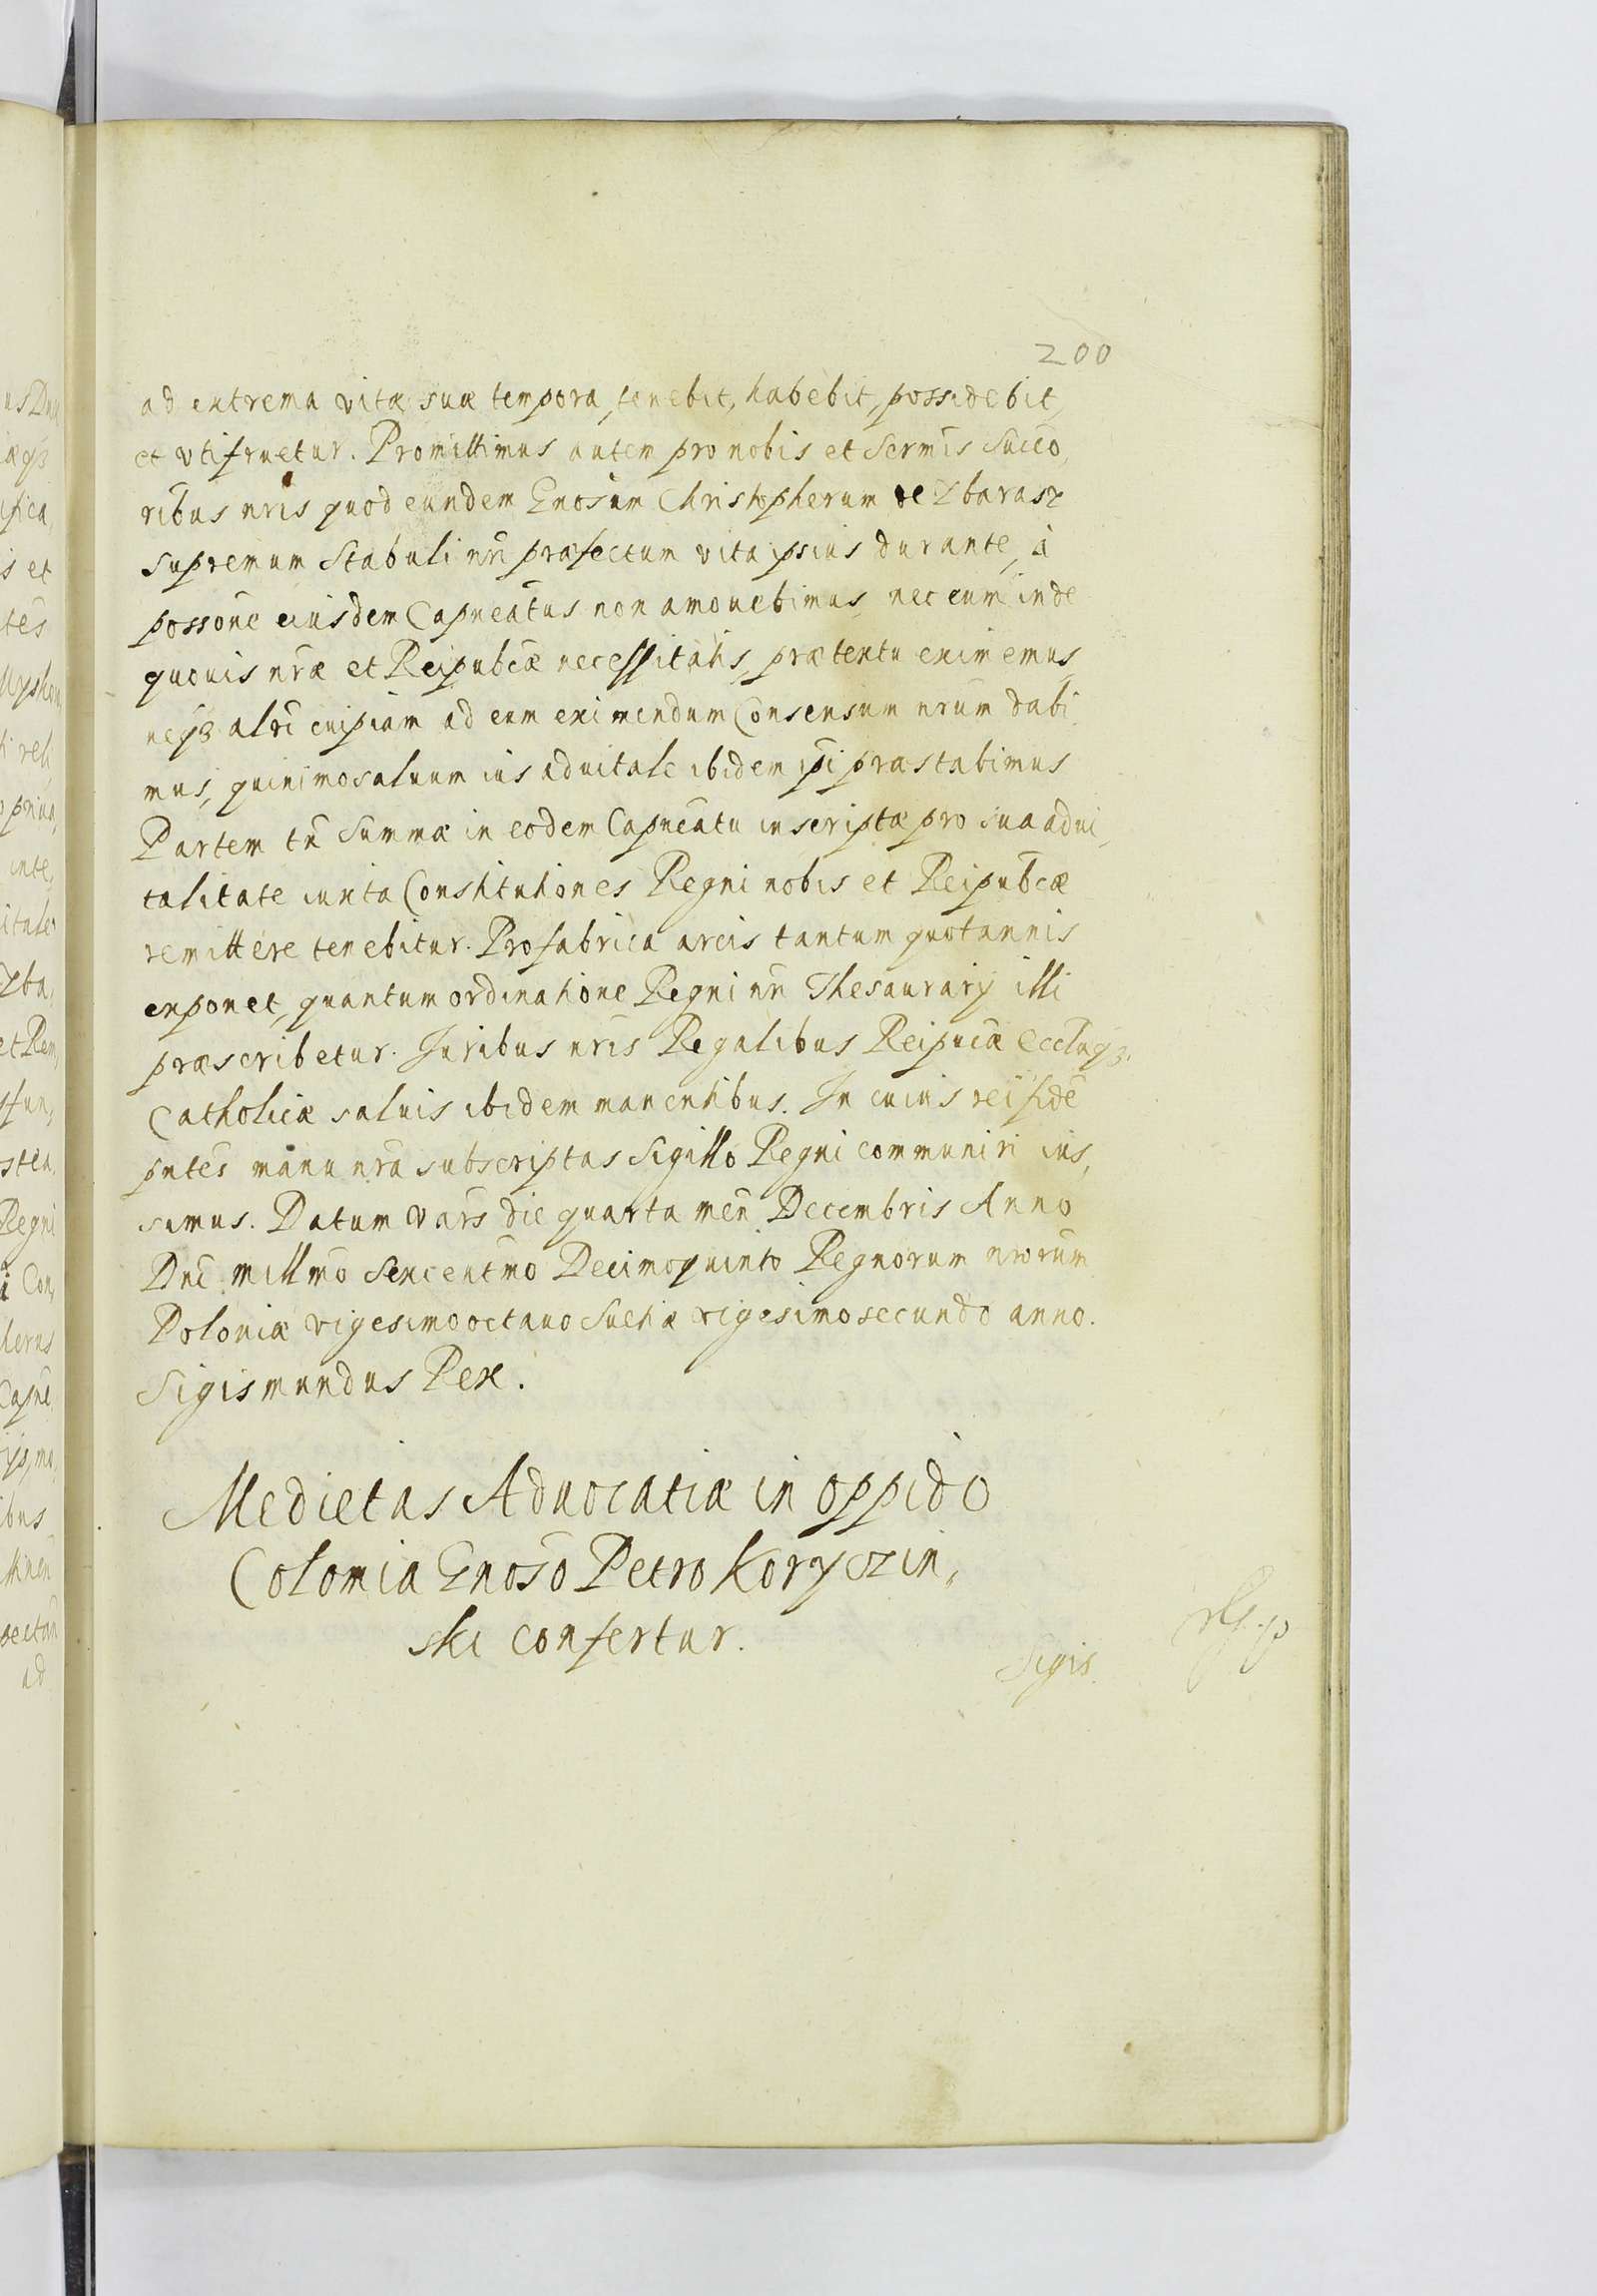 200
ad extrema vitæ suæ tempora, tenebit, habebit, possidebit,
et vtifruetur. Promittimus autem pro nobis et Sermis Succo,
ribus nris quod eundem Gnosum Christopherum de Zbarasz
supremum Stabuli nri præfectum vita ipsius durante, à
possone eiusdem Capneatus non amouebimus, nec eum inde
quouis nræ et Reipubcæ necessitatis, prætentu eximemus,
neqz alri cuipiam ad eum eximendum Consensum nrum dabi,
mus, quinimo saluum ius aduitale ibidem ipi præstabimus
Partem tn Summæ in eodem Capneatu inscriptæ pro sua adui,
talitate iuxta Constitutiones Regni nobis et Reipubcæ
remittere tenebitur. Pro fabrica arcis tantum quotannis
exponet, quantum ordinatione Regni nri Thesaurarij illi
præscribetur. Juribus nris Regalibus Reipucæ Ecclaqz.
Catholicæ saluis ibidem manentibus. In cuius rei fidē
pntes manu nra subscriptas Sigillo Regni communiri ius,
simus. Datum Vars die quarta men Decembris Anno
Dni millmo Sexcentmo Decimoquinto Regnorum nrorum
Poloniæ vigesimooctauo Suetiæ vigesimosecundo anno.
Sigismundus Rex.
Medietas Aduocatiæ in oppido
Colomia Gnoso Petro Koryczin,,
ski confertur.
Sigis.